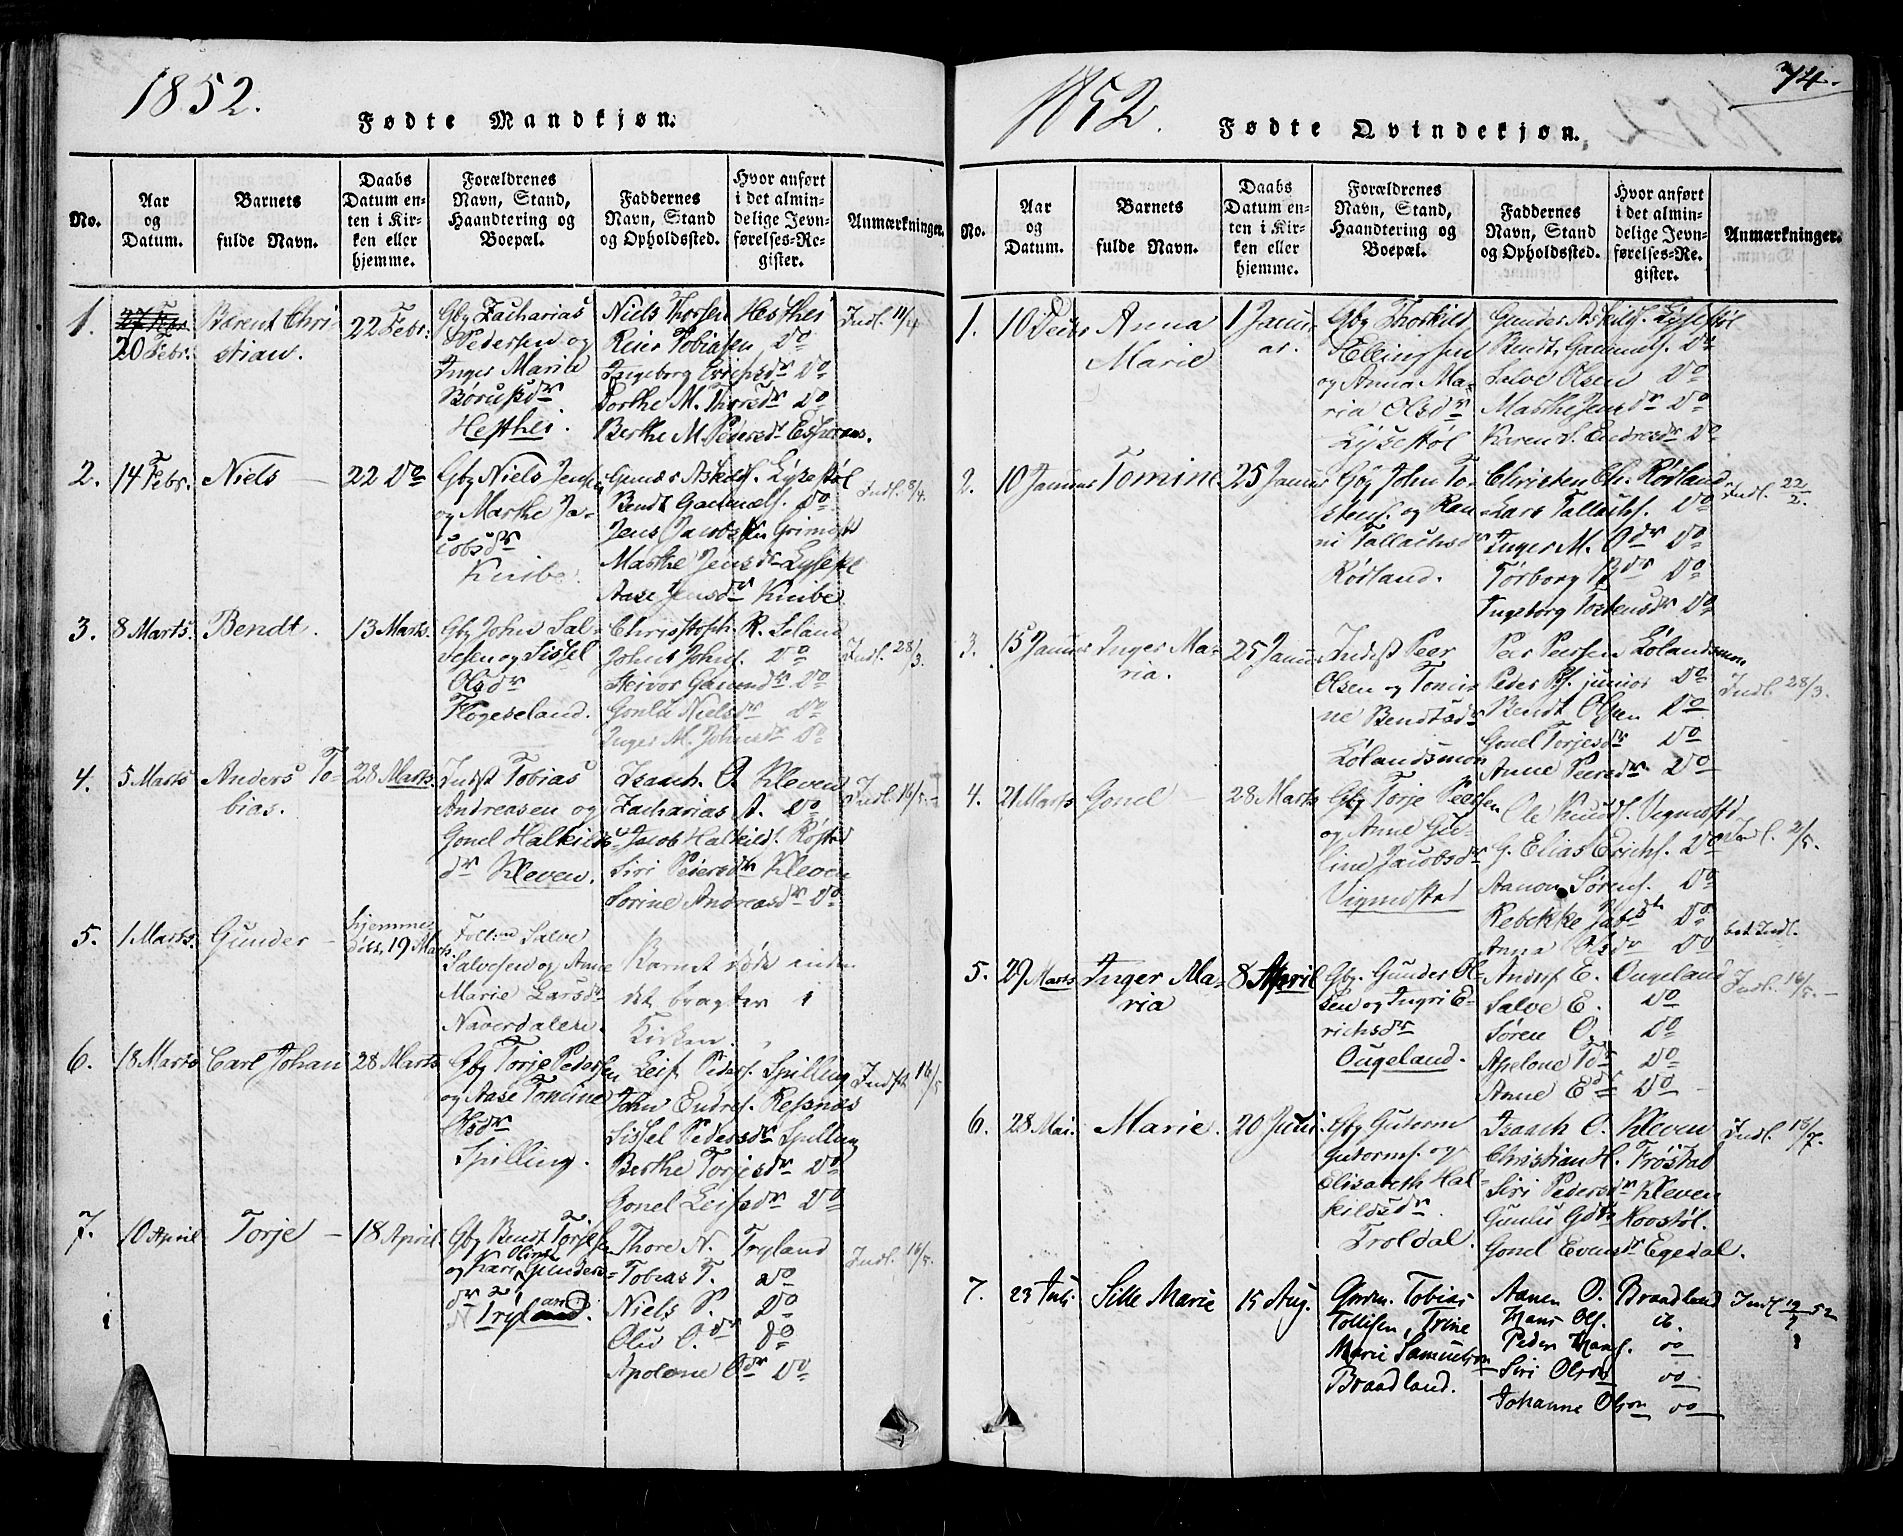 1852.
Fødte Mandkjøn.
No.
Aar og Datum.
Barnets fulde Navn.
Daabs Datum enten i Kirken eller hjemme.
Forældrenes Navn, Stand, Haandtering og Boepæl.
Faddernes Navn, Stand og Opholdssted.
Hvor anført i det almindelige Jevnførelses-Register.
Anmærkninger.
1.
20 Febr.
Berent Christian.
22 Febr.
Gby Zacharias
Pedersen og
Inger Marie
Hesthei.
Niels Thorsen Hesthei
Reier Tobiasen Do
Ingeborg Do
Dorthe M. Thorsdr Do
Berthe M. Pedersdr
Indl. 11/4
2.
14 Febr.
Niels
22 Do
Gby Niels Jensen
og Marthe Ja-
cobsdr
Knibe.
Gunder Askelds. Lysestøl
Bendt Gammels. Do
Jens Jacobsen
Marthe Jensdr Lysestøl
Aase Jensdr Knibe
Indl. 8/4.
3.
8 Marts.
Bendt.
13 Marts.
Gby John Sal-
vesen og Sissel
Olsdr
Christoph. R.
Johns. Do
Do
Gonlu Nielsdr Do
Inger M. Johnsdr Do
Indl. 28/3.
4.
5 Marts
Anders To-
bias.
28 Marts.
Indst Tobias
Andreasen og
Gonel Halkilds-
dr Kleven.
Isaach O. Kleven
Zacharias A. Do
Jacob Halkilds.
Siri Pedersdr Kleven
Sorine Andreasdr Do
Indl. 16/5.
5.
1 Marts.
Gunder
hjemme-
døbt, 19 Marts
Salve
Salvesen og Anne
Marie Larsdr
Naverdalen
Barnet døde inden
det bragtes i
Kirken.
6.
18 Marts
Carl Johan
28 Marts
Gby Torje Pedersen
og Aase Tomine
Olsdr
Spilling.
Leif Peders. Spilling
John Endres. Refsnæs
Sissel Pedersdr Spilling
Berthe Torjesdr Do
Gonel Leifsdr Do
Indst. 16/5
7.
10 April
Torje
18 April
Gby Bendt Torjesen
og Kari Oline Gunders-
dr
Tryland.
Thore N. Tryland
Tobias T. Do
Niels P. Do
Oliv O.dr Do
Apolone Odr Do
Indl. 16/5.
1852.
74.
Fødte Qvindekjøn.
No.
Aar og Datum.
Barnets fulde Navn.
Daabs Datum enten i Kirken eller hjemme.
Forældrenes Navn, Stand, Haandtering og Boepæl.
Faddernes Navn, Stand og Opholdssted.
Hvor anført i det almindelige Jevnførelses-Register.
Anmærkninger.
1.
10 Decbr
Anna
Marie
1 Janu-
ar.
Gby Thorkild
Ellingsen
og Anna Ma-
ria Olsdr
Lysestøl
Gunder Askilds. Lysestøl
Bendt Gammels. Do
Salve Olsen Do
Marthe Jensdr Do
Karen S. Endresdr Do
2.
10 Januar
Tomine
25 Januar
Gby John To-
stens. og Ran-
ni Tallachsdr
Rødland.
Christen Ch. Rødland
Lars Tallachs. Do
Inger M. Odr Do
Torborg Do
Ingeborg Tostensdr Do
Indl. 22/2.
3.
15 Januar
Inger Ma-
ria.
25 Januar
Indst Peer
Olsen og Tomi-
ne Bendtsdr
Lølandsmoen
Peer Peersen Lølandsmoen
Peder Ps. junior Do
Bendt Olsen Do
Gonel Torjesdr Do
Anne Peersdr Do
Indl. 28/3.
4.
21 Marts
Gonel
28 Marts
Gby Torje Peersen
og Anne Gu-
line Jacobsdr
Vigmostad
Ole Knuds. Vigmostd
G. Elias Erichs. Do
Aanon Sørens. Do
Rebekke Do
Anna Olsdr Do
Indl. 2/5.
bet Indl.
5.
29 Marts
Inger Ma-
ria
8 April
Gby. Gunder Ol-
sen og Ingri E-
richsdr
Ougeland.
Anders E. Ougeland
Salve E. Do
Søren O. Do
Apelone To Do
Anne Edr Do
Indl. 16/5.
6.
28 Mai.
Marie.
20 Juli.
Gby Gutorm
Gutorms. og
Elisabeth Hal-
kildsdr.
Troldal.
Isaach O. Kleven
Christian H. Frøstad
Siri Pedersdr Kleven
Gunlu Gdtr Hoostøl.
Gonel Evensdr Egedal.
Indl. 18/7.
7.
23 Juli
Sille Marie
15 Aug.
Tobias
Tollefsen, Trine
Marie Samuelsen
Braadland.
Aanen O. Braadland
Hans Ols. ib.
Peder Hans. do
Siri Olsen do
Johanne Olsen do
Indl 52